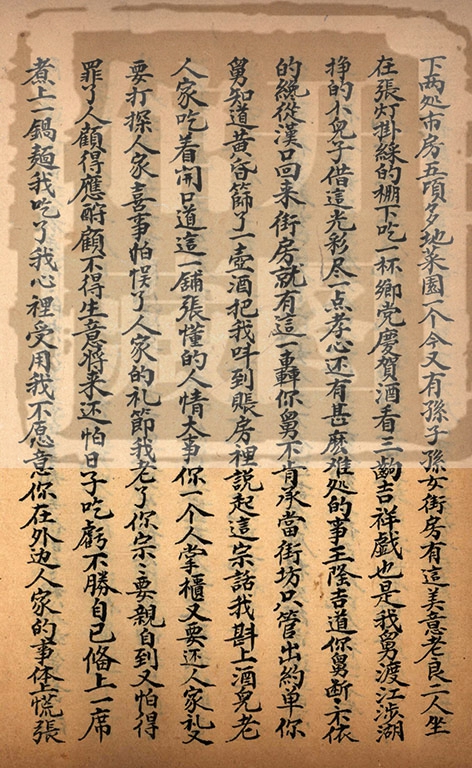 下两処市房五頃多地菜園一个今又有孫子孫女街房有這美意老良二人坐
在張灯掛綵的棚下吃一杯鄉党慶賀酒看三齣吉祥戱也是我舅渡江涉湖
挣的小兒子借這光彩尽一点孝心还有甚麽难処的事王隆吉道你舅断〻不依
的總從漢口回来街房就有這一轟你舅不肯承當街坊只管出約单你
舅知道黄昏篩了一壺酒把我呌到賬房裡説起這宗話我斟上酒兒老
人家吃着開口道這一舖張懂的人情大事你一个人掌櫃又要还人家礼又
要打探人家喜事怕悮了人家的礼節我老了你宗〻要親自到又怕得
罪了人顧得應酧顧不得生意将来还怕日子吃虧不勝自已俻上一席
煮上一鍋麺我吃了我心裡受用我不愿意你在外边人家的事体上慌張